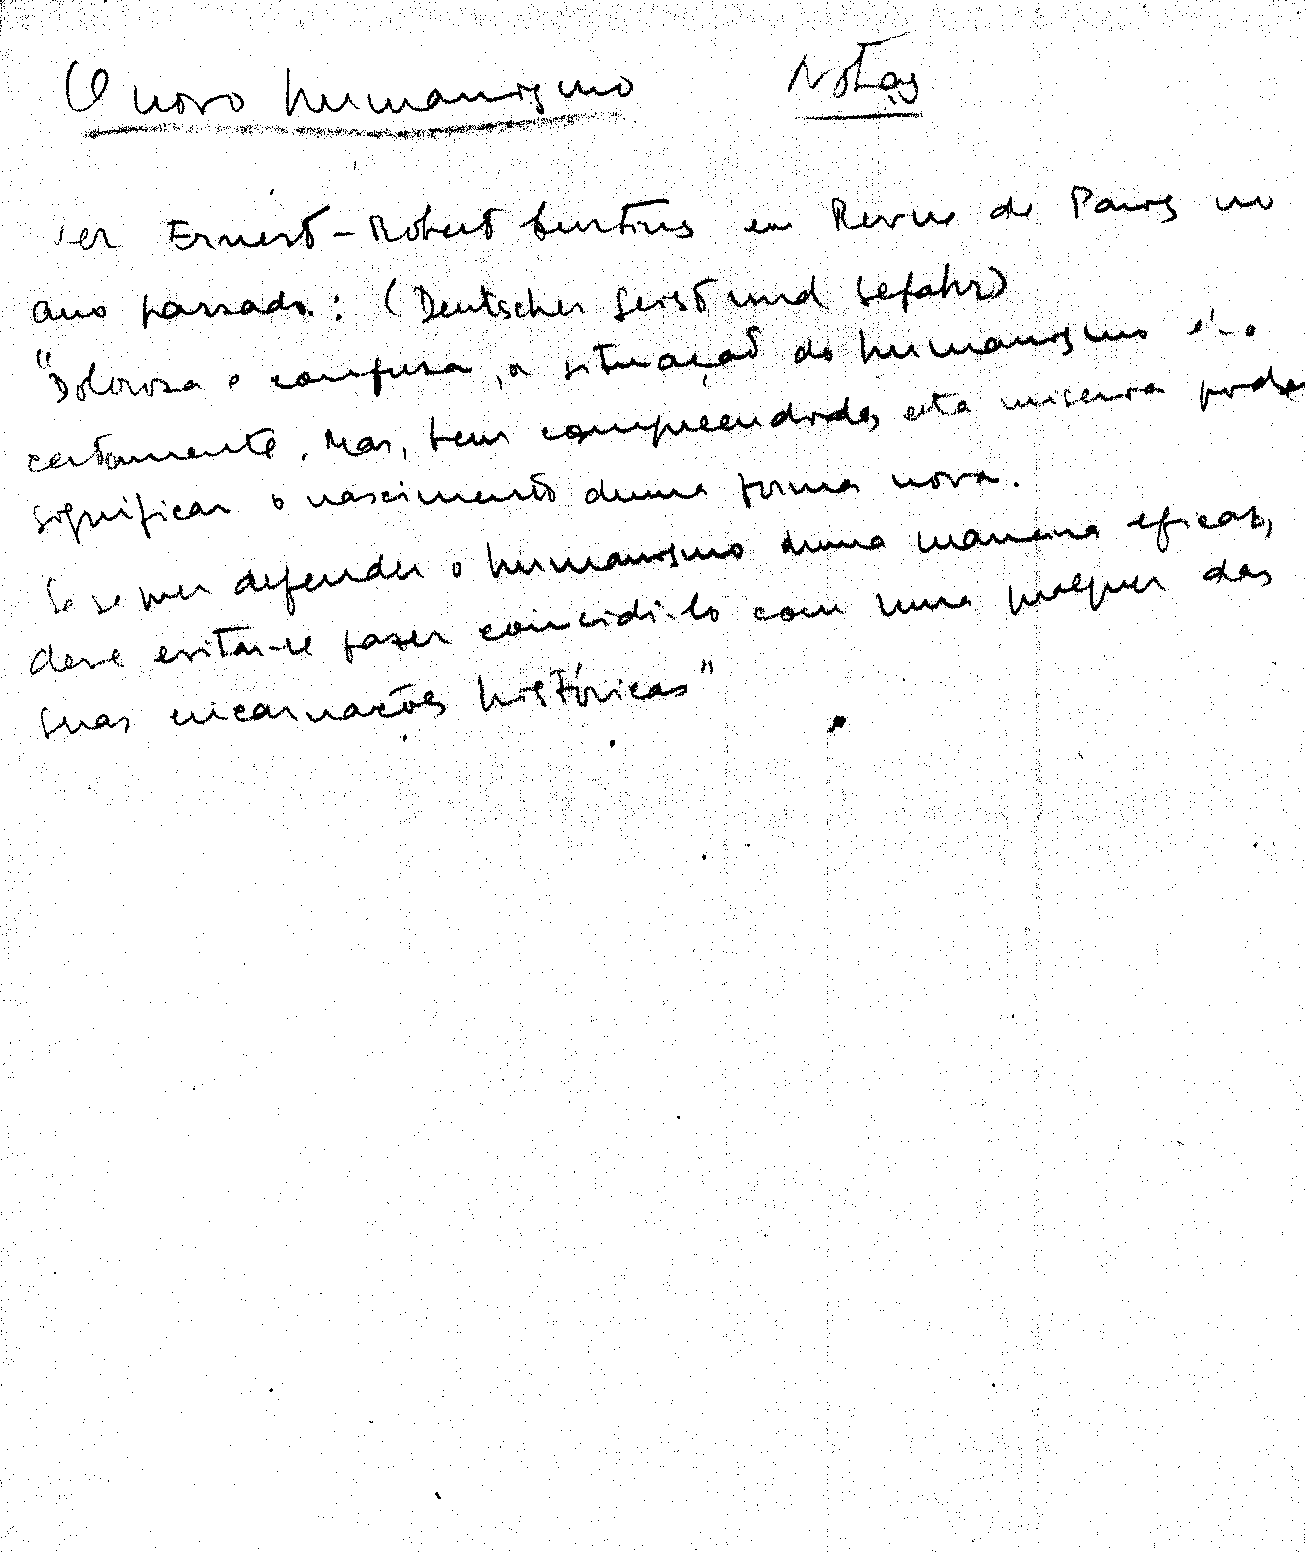 O novo humanismo Notas
Ver Ernest-Robert Curtius em Revue de Paris no
ano passado: (Deutscher Geist und Gefahr)
"Dolorosa e confusa, a situação do humanismo é-o
certamente. Mas, bem compreendida, esta miseria pode
significar o nascimento duma forma nova.
Se se quer defender o humanismo duma maneira eficaz,
deve evitar-se fazer coincidi-lo com uma qualquer das
suas encarnações históricas"